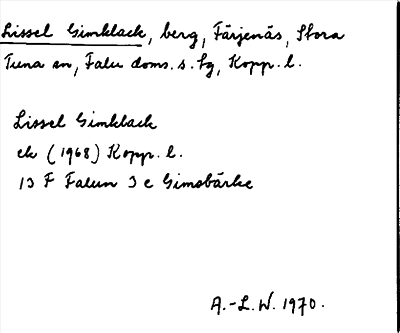 Lissel Gimklack, berg, Färjenäs, Stora
Tuna sn, Falu doms. s. lg, Kopp. l.
Lissel Gimklack
ek (1968) Kopp. l.
13 F Falun 3 c Gimsbärke
A.-L. W. 1970.